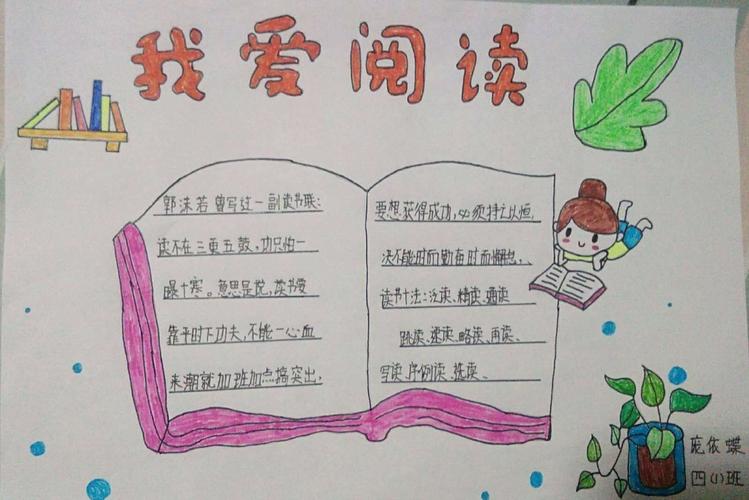 我爱阅读
郭沫若曾写过一副读书联:
读不在三更五鼓,功只怕一
曝十寒。意思是说,读书要
靠平时下功夫,不能一心血
来潮就加班加点搞突出,
要想获得成功,必须持之以恒,
决不能时而勤奋时而懈怠、
读书十法:泛读、精读、通读
跳读、速读、略读、再读、
写读、序例读、选读、
庞依蝶
四(1)班